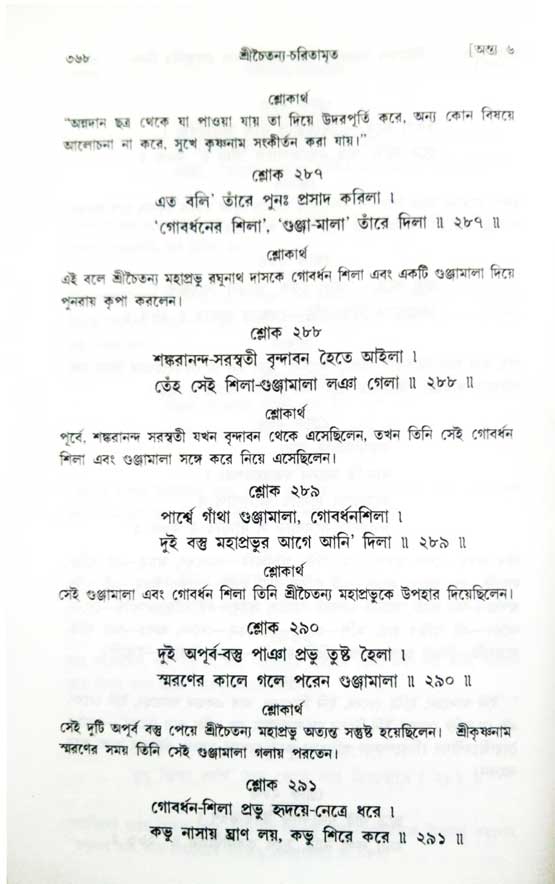 ৩৬৮ শ্রীচৈতন্য-চরিতামৃত [অন্ত্য ৬
শ্লোকার্থ
"অন্নদান ছত্র থেকে যা পাওয়া যায় তা দিয়ে উদরপূর্তি করে, অন্য কোন বিষয়ে
আলোচনা না করে, সুখে কৃষ্ণনাম সংকীর্তন করা যায়।"
শ্লোক ২৮৭
এত বলি' তাঁরে পুনঃ প্রসাদ করিলা ।
'গোবর্ধনের শিলা', 'গুঞ্জা-মালা' তাঁরে দিলা ॥ ২৮৭ ॥
শ্লোকার্থ
এই বলে শ্রীচৈতন্য মহাপ্রভু রঘুনাথ দাসকে গোবর্ধন শিলা এবং একটি গুঞ্জামালা দিয়ে
পুনরায় কৃপা করলেন।
শ্লোক ২৮৮
শঙ্করানন্দ-সরস্বতী বৃন্দাবন হৈতে আইলা ।
তেঁহ সেই শিলা-গুঞ্জামালা লঞা গেলা ॥ ২৮৮ ॥
শ্লোকার্থ
পূর্বে, শঙ্করানন্দ সরস্বতী যখন বৃন্দাবন থেকে এসেছিলেন, তখন তিনি সেই গোবর্ধন
শিলা এবং গুঞ্জামালা সঙ্গে করে নিয়ে এসেছিলেন।
শ্লোক ২৮৯
পার্শ্বে গাঁথা গুঞ্জামালা, গোবর্ধনশিলা ।
দুই বস্তু মহাপ্রভুর আগে আনি' দিলা ॥ ২৮৯ ॥
শ্লোকার্থ
সেই গুঞ্জামালা এবং গোবর্ধন শিলা তিনি শ্রীচৈতন্য মহাপ্রভুকে উপহার দিয়েছিলেন।
শ্লোক ২৯০
দুই অপূর্ব-বস্তু পাঞা প্রভু তুষ্ট হৈলা ।
স্মরণের কালে গলে পরেন গুঞ্জামালা ॥ ২৯০ ॥
শ্লোকার্থ
সেই দুটি অপূর্ব বস্তু পেয়ে শ্রীচৈতন্য মহাপ্রভু অত্যন্ত সন্তুষ্ট হয়েছিলেন। শ্রীকৃষ্ণনাম
স্মরণের সময় তিনি সেই গুঞ্জামালা গলায় পরতেন।
শ্লোক ২৯১
গোবর্ধন-শিলা প্রভু হৃদয়ে-নেত্রে ধরে ।
কভু নাসায় ঘ্রাণ লয়, কভু শিরে করে ॥ ২৯১ ॥